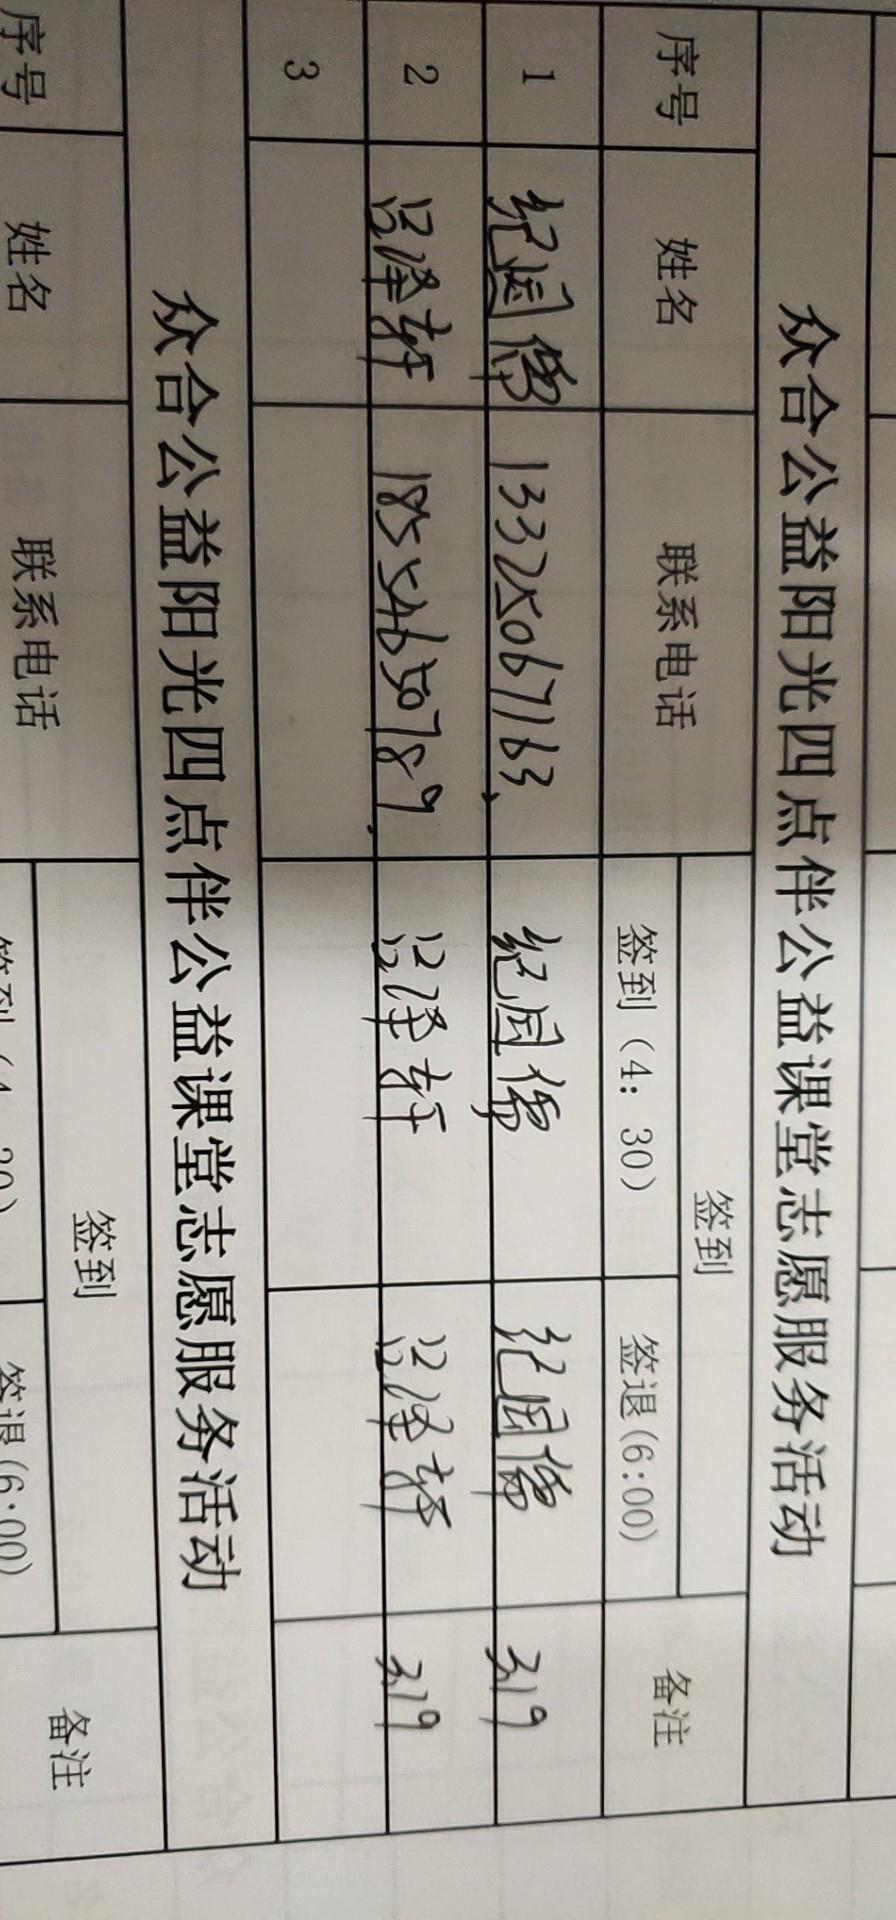 众合公益阳光四点伴公益课堂志愿服务活动
序号 姓名 联系电话 签到 备注
签到（4：30） 签退(6:00)
1 纪国儒 13325067163 纪国儒 纪国儒 3.19
2 吕泽轩 18554650789 吕泽轩 吕泽轩 3.19
3
众合公益阳光四点伴公益课堂志愿服务活动
序号 姓名 联系电话 签到 备注
签到（4：30） 签退(6:00)